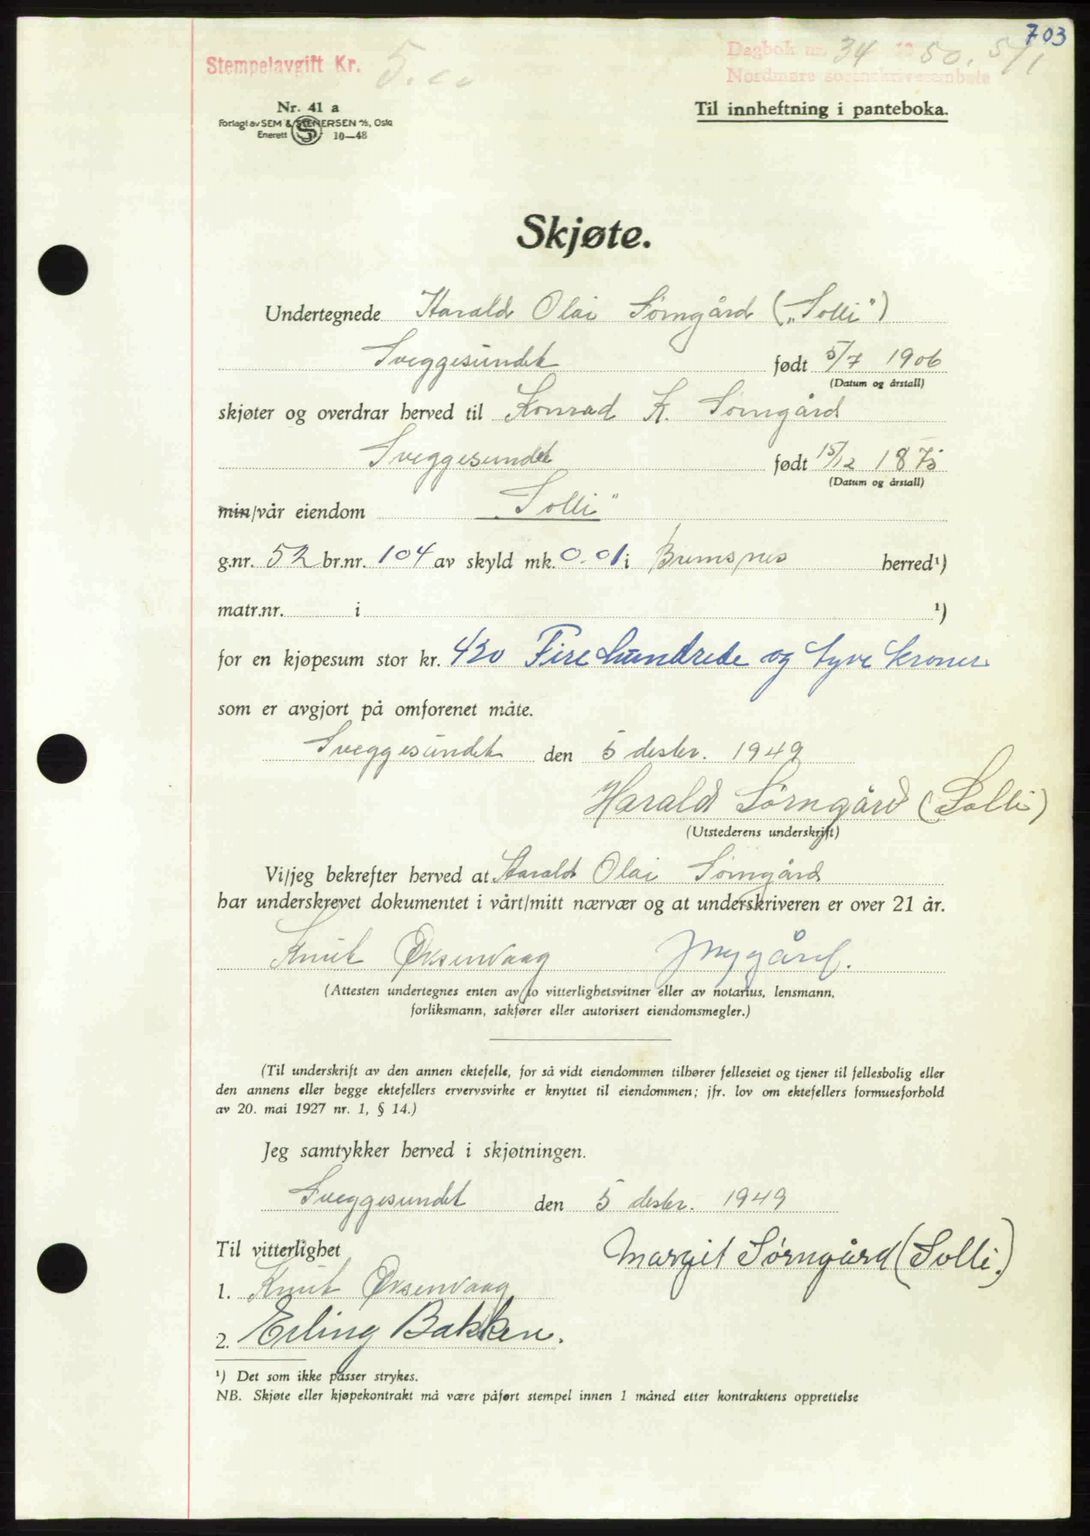 703
Stempelavgift Kr. 5.00
Dagbok nr. 34 1950. 5/1
Nordmøre sorenskriverembete
Nr. 41 a
Forlagt av SEM & STENERSEN A/S, Oslo
Enerett 10—48
Til innheftning i panteboka.
Skjøte.
Undertegnede Harald Olai Sørngård („Solli")
Sveggesundet født 5/7 1906
(Datum og årstall)
skjøter og overdrar herved til Konrad K. Sørngård
Sveggesundet født 15/12 1875
(Datum og årstall)
min/vår eiendom „Solli"
g.nr. 52 br.nr. 104 av skyld mk. 0.01 i Bremsnes herred¹)
matr.nr. i ¹)
for en kjøpesum stor kr. 420 Fire hundrede og tyve kroner
som er avgjort på omforenet måte.
Sveggesundet den 5 desbr. 1949
Harald Sørngård (Solli)
(Utstederens underskrift)
Vi/jeg bekrefter herved at Harald Olai Sørngård
har underskrevet dokumentet i vårt/mitt nærvær og at underskriveren er over 21 år.
Knut Øksenvaag J Nygård.
(Attesten undertegnes enten av to vitterlighetsvitner eller av notarius, lensmann,
forliksmann, sakfører eller autorisert eiendomsmegler.)
(Til underskrift av den annen ektefelle, for så vidt eiendommen tilhører felleseiet og tjener til fellesbolig eller
den annens eller begge ektefellers ervervsvirke er knyttet til eiendommen; jfr. lov om ektefellers formuesforhold
av 20. mai 1927 nr. 1, § 14.)
Jeg samtykker herved i skjøtningen.
Sveggesundet den 5 desbr. 1949
Til vitterlighet
Margit Sørngård (Solli.)
1. Knut Øksenvaag
2. Erling Bakken.
¹) Det som ikke passer strykes.
NB. Skjøte eller kjøpekontrakt må være påført stempel innen 1 måned etter kontraktens opprettelse